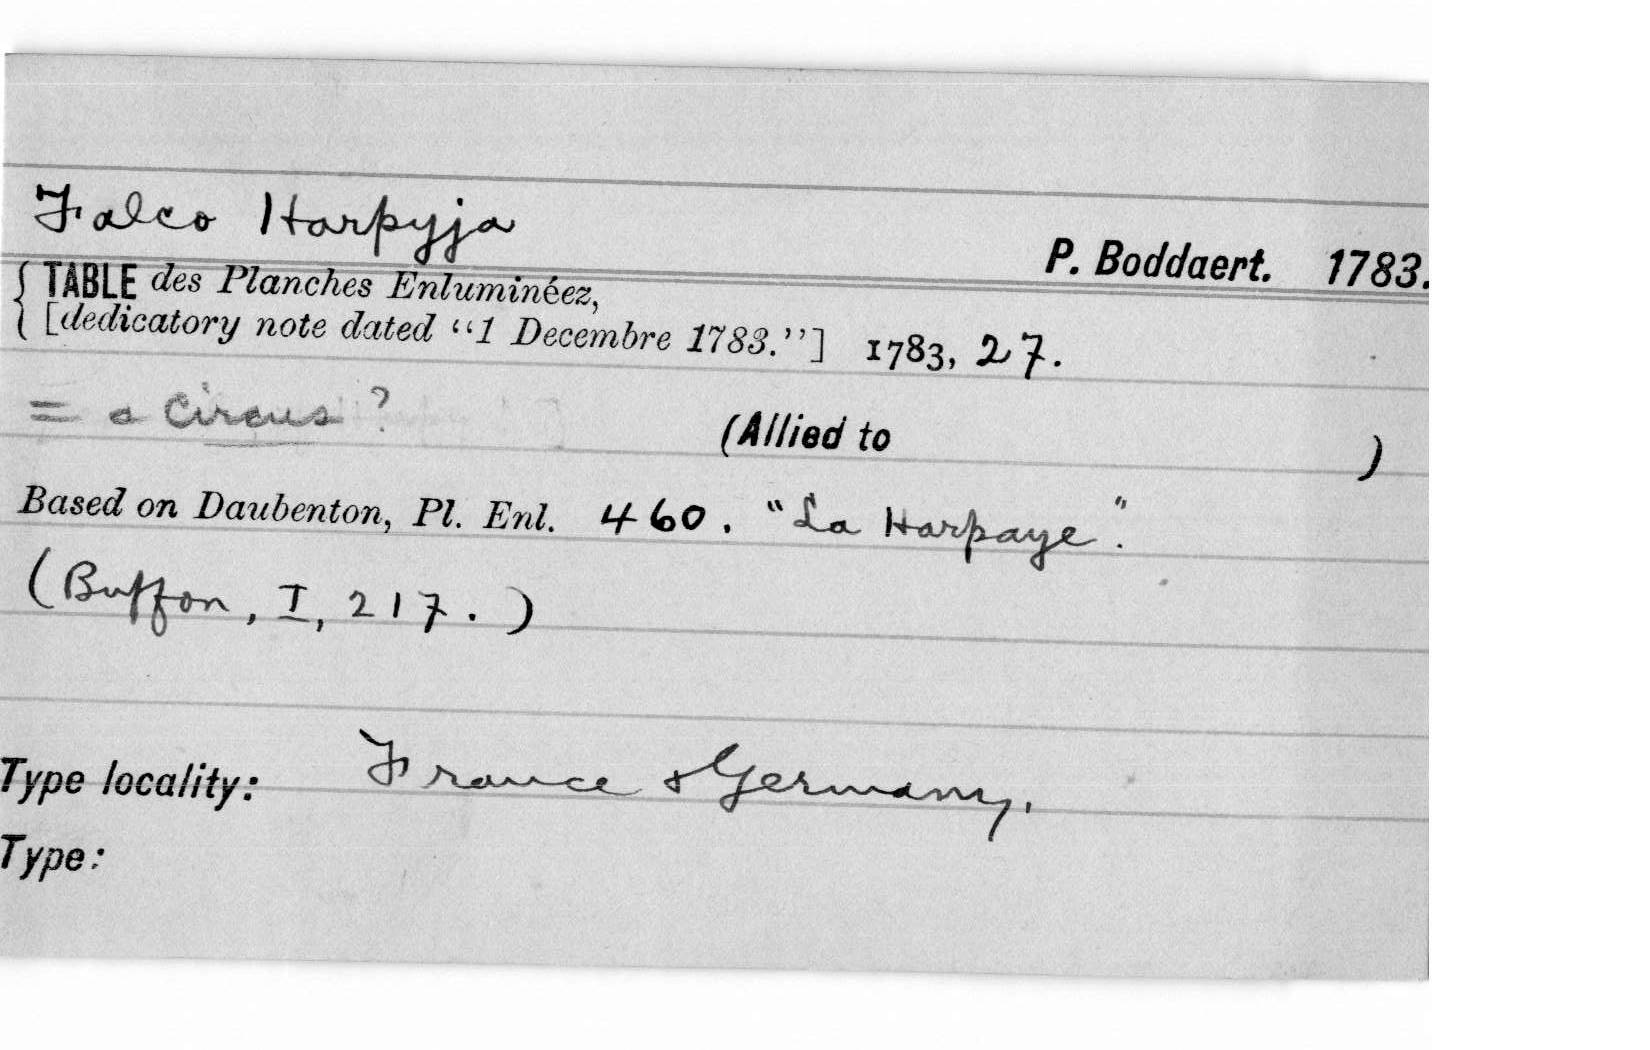 Falco Harpyja
P. Boddaert. 1783.
{ TABLE des Planches Enluminéez,
[dedicatory note dated “1 Decembre 1783.”] 1783, 27.
= a Circus ?
(Allied to )
Based on Daubenton, Pl. Enl. 460. "La Harpaye".
(Buffon, I, 217.)
Type locality: France & Germany.
Type: